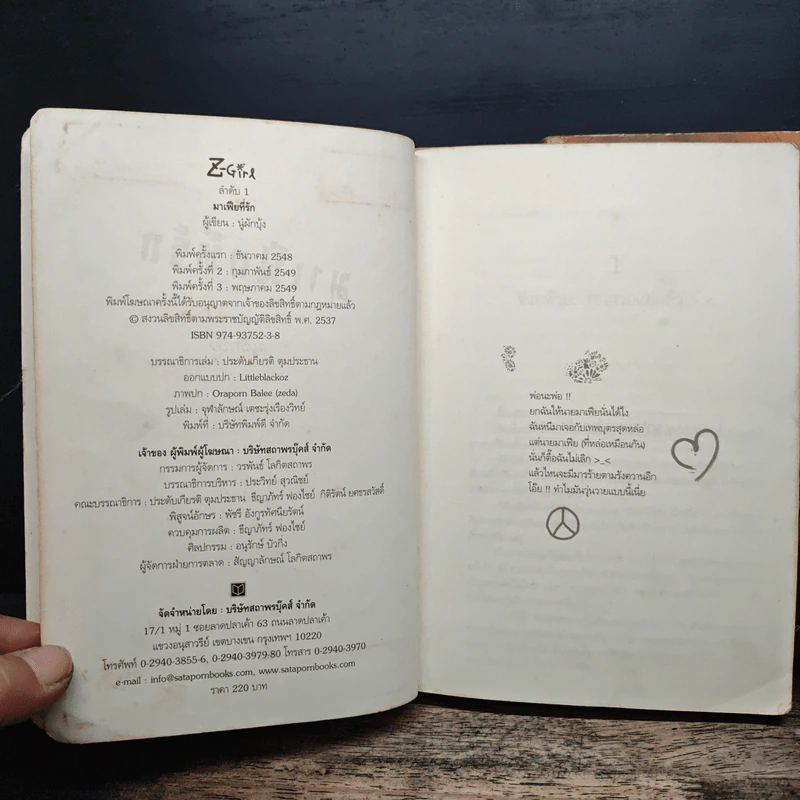 Z-Girl
ลำดับ 1
มาเฟียที่รัก
ผู้เขียน : นู๋ผักบุ้ง
พิมพ์ครั้งแรก : ธันวาคม 2548
พิมพ์ครั้งที่ 2 : กุมภาพันธ์ 2549
พิมพ์ครั้งที่ 3 : พฤษภาคม 2549
พิมพ์โฆษณาครั้งนี้ได้รับอนุญาตจากเจ้าของลิขสิทธิ์ตามกฎหมายแล้ว
© สงวนลิขสิทธิ์ตามพระราชบัญญัติลิขสิทธิ์ พ.ศ. 2537
ISBN 974-93752-3-8
บรรณาธิการเล่ม : ประดับเกียรติ ตุมประธาน
ออกแบบปก : Littleblackoz
ภาพปก : Oraporn Balee (zeda)
รูปเล่ม : จุฬาลักษณ์ เตชะรุ่งเรืองวิทย์
พิมพ์ที่ : บริษัทพิมพ์ดี จำกัด
เจ้าของ ผู้พิมพ์ผู้โฆษณา : บริษัทสถาพรบุ๊คส์ จำกัด
กรรมการผู้จัดการ : วรพันธ์ โลกิตสถาพร
บรรณาธิการบริหาร : ประวิทย์ สุวณิชย์
คณะบรรณาธิการ : ประดับเกียรติ ตุมประธาน ธีญาภัทร์ ฟองไชย์ กิติรัตน์ ยศธรสวัสดิ์
พิสูจน์อักษร : พัชรี อังกูรทัศนียรัตน์
ควบคุมการผลิต : ธีญาภัทร์ ฟองไชย์
ศิลปกรรม : อนุรักษ์ บัวกิ่ง
ผู้จัดการฝ่ายการตลาด : สัญญาลักษณ์ โลกิตสถาพร
จัดจำหน่ายโดย : บริษัทสถาพรบุ๊คส์ จำกัด
17/1 หมู่ 1 ซอยลาดปลาเค้า 63 ถนนลาดปลาเค้า
แขวงอนุสาวรีย์ เขตบางเขน กรุงเทพฯ 10220
โทรศัพท์ 0-2940-3855-6, 0-2940-3979-80 โทรสาร 0-2940-3970
e-mail : info@satapornbooks.com, www.satapornbooks.com
ราคา 220 บาท
พ่อนะพ่อ !!
ยกฉันให้นายมาเฟียนั่นได้ไง
ฉันหนีมาเจอกับเทพบุตรสุดหล่อ
แต่นายมาเฟีย (ที่หล่อเหมือนกัน)
นั่นก็ตื๊อฉันไม่เลิก >_<
แล้วไหนจะมีมารร้ายตามรังควานอีก
โอ๊ย !! ทำไมมันวุ่นวายแบบนี้เนี่ย